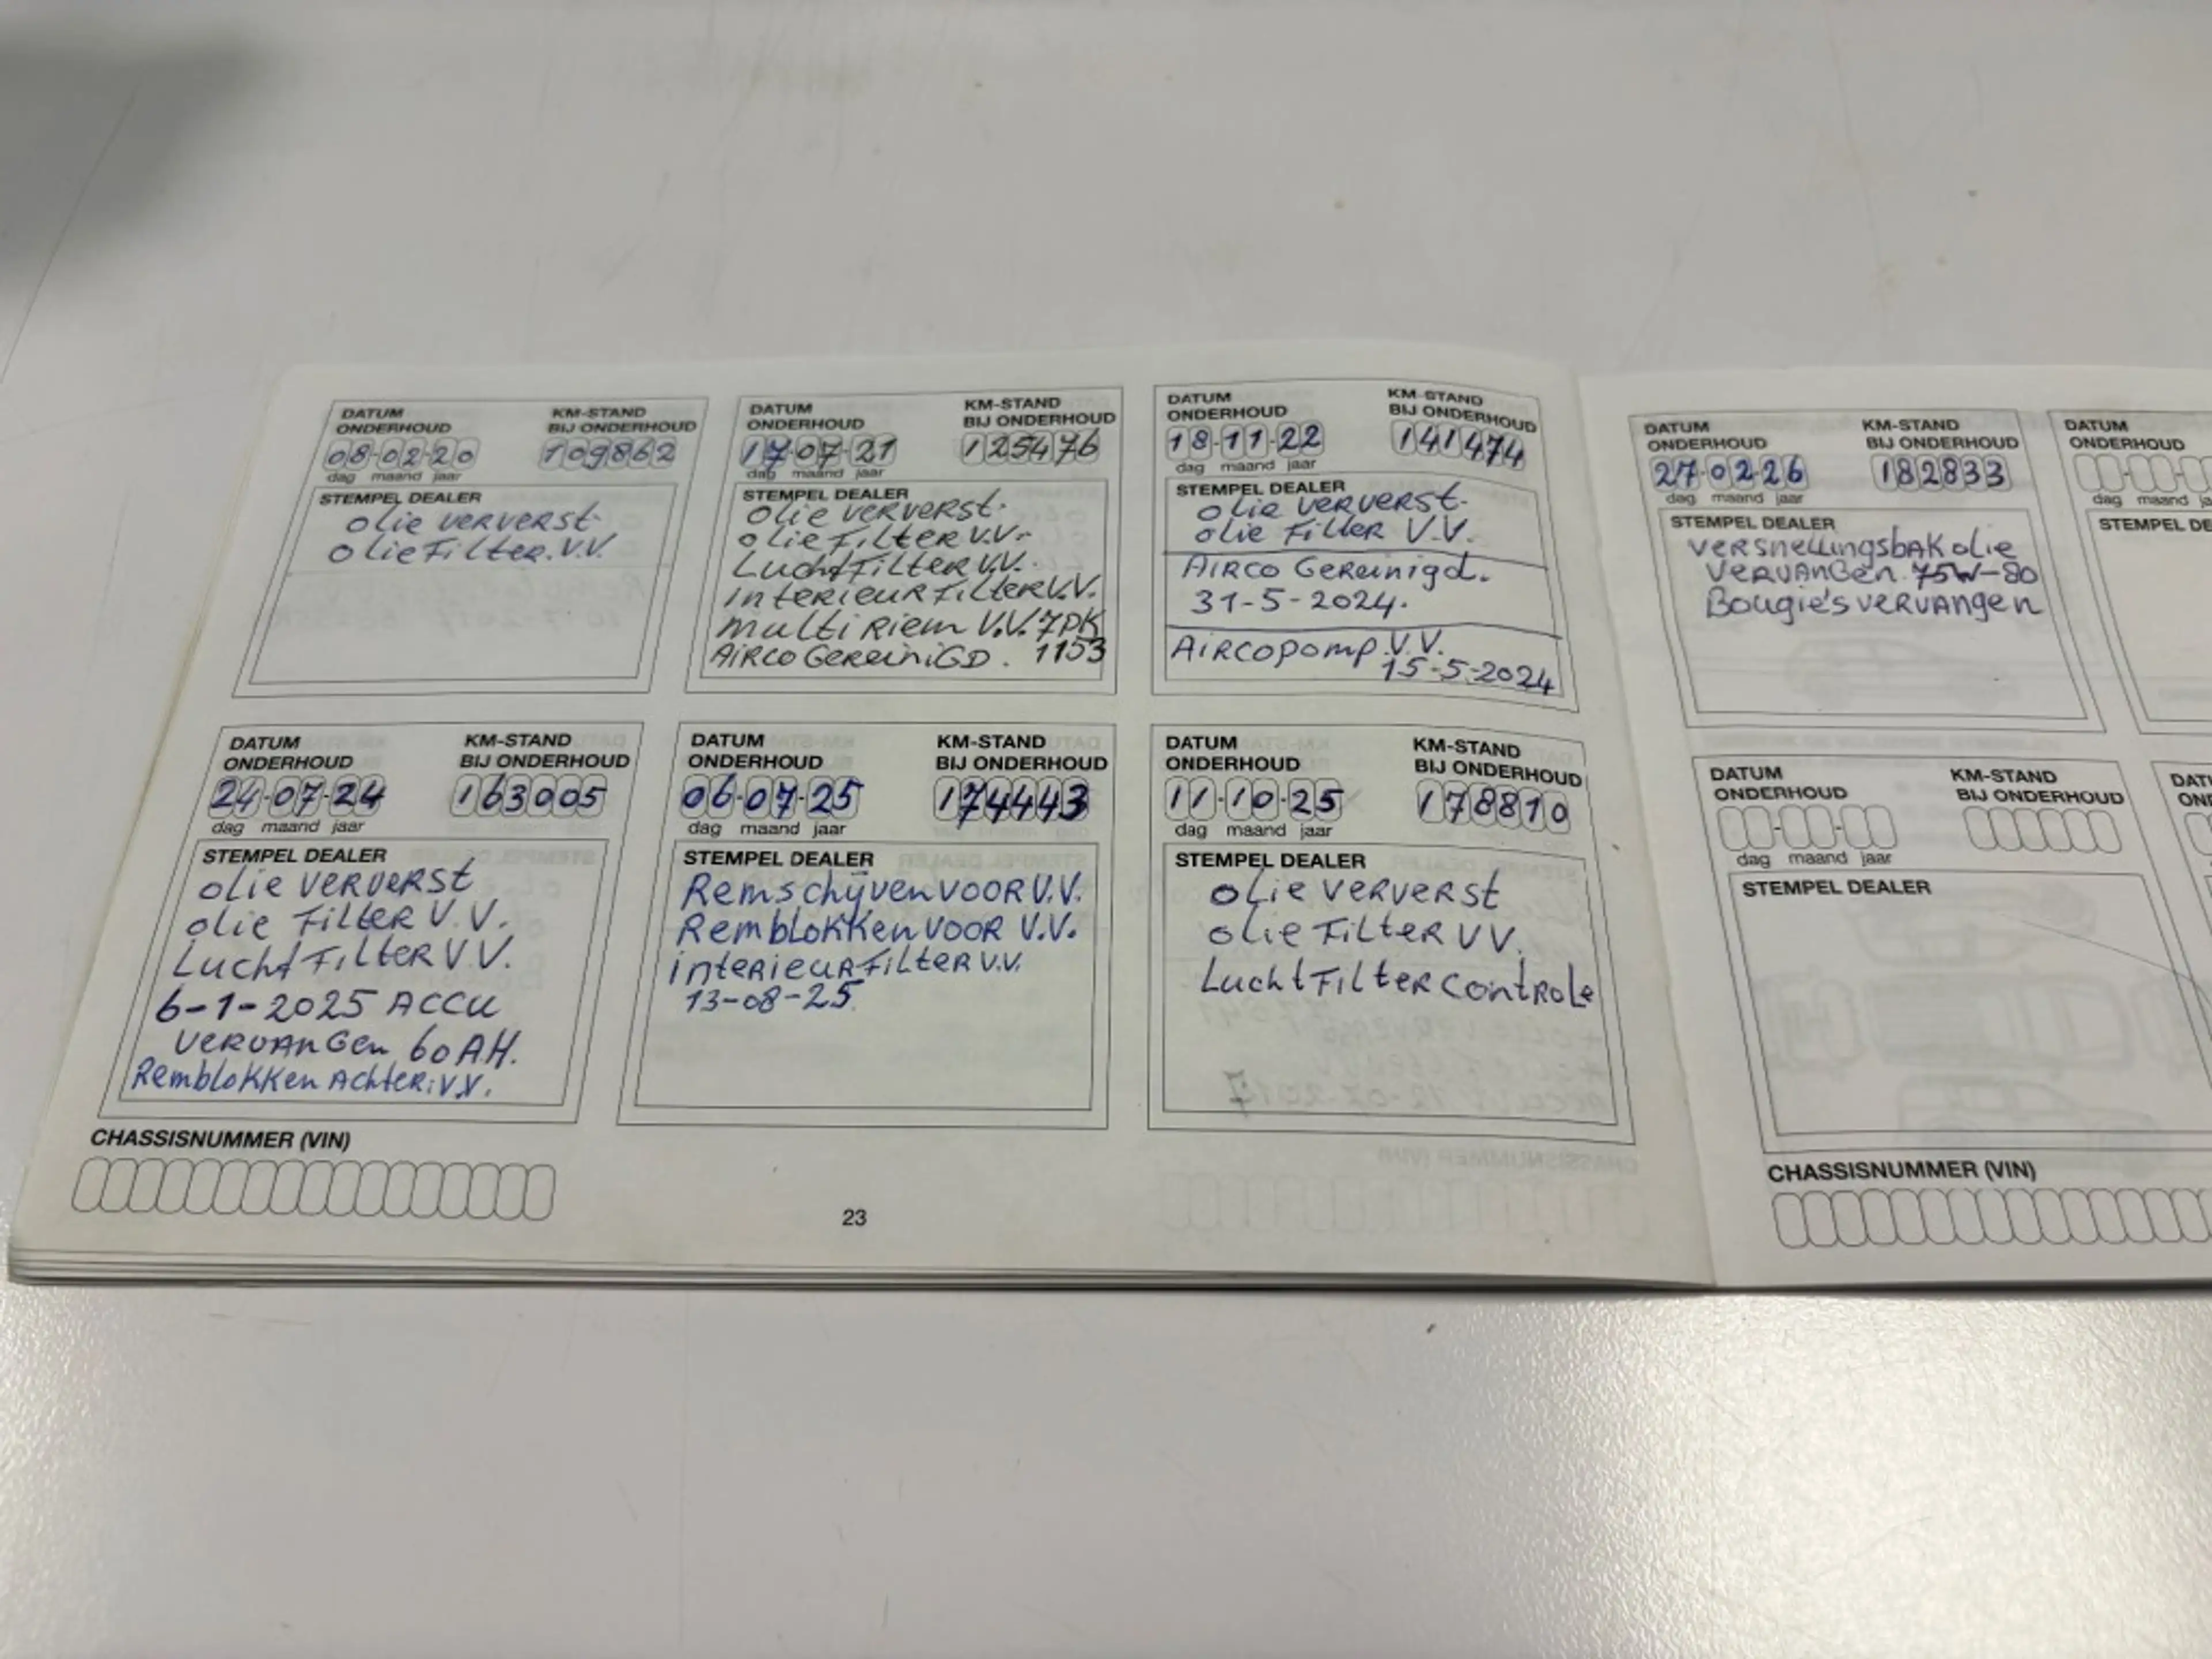 DATUM
ONDERHOUD
KM-STAND
BIJ ONDERHOUD
08-02-20
109862
dag maand jaar
STEMPEL DEALER
olie ververst
olie Filter. V.V.
DATUM
ONDERHOUD
KM-STAND
BIJ ONDERHOUD
17-07-21
125476
dag maand jaar
STEMPEL DEALER
olie ververst.
olie Filter V.V.
Lucht Filter V.V.
interieur Filter V.V.
multi Riem V.V. 7PK
Airco Gereinigd. 1153
DATUM
ONDERHOUD
KM-STAND
BIJ ONDERHOUD
18-11-22
141474
dag maand jaar
STEMPEL DEALER
olie ververst.
olie Filter V.V.
Airco Gereinigd.
31-5-2024.
Aircopomp V.V.
15-5-2024
DATUM
ONDERHOUD
KM-STAND
BIJ ONDERHOUD
24-07-24
163005
dag maand jaar
STEMPEL DEALER
olie ververst
olie Filter V.V.
Lucht Filter V.V.
6-1-2025 Accu
vervangen 60 AH.
Remblokken Achter: V.V.
DATUM
ONDERHOUD
KM-STAND
BIJ ONDERHOUD
06-07-25
174443
dag maand jaar
STEMPEL DEALER
Remschijven voor V.V.
Remblokken voor V.V.
interieurfilter V.V.
13-08-25.
DATUM
ONDERHOUD
KM-STAND
BIJ ONDERHOUD
11-10-25
178810
dag maand jaar
STEMPEL DEALER
olie ververst
olie Filter VV.
Lucht Filter controle
CHASSISNUMMER (VIN)
23
DATUM
ONDERHOUD
KM-STAND
BIJ ONDERHOUD
27-02-26
182833
dag maand jaar
STEMPEL DEALER
versnellingsbak olie
vervangen. 75W-80
Bougie's vervangen
DATUM
ONDERHOUD
dag maand
STEMPEL DE
DATUM
ONDERHOUD
KM-STAND
BIJ ONDERHOUD
dag maand jaar
STEMPEL DEALER
CHASSISNUMMER (VIN)